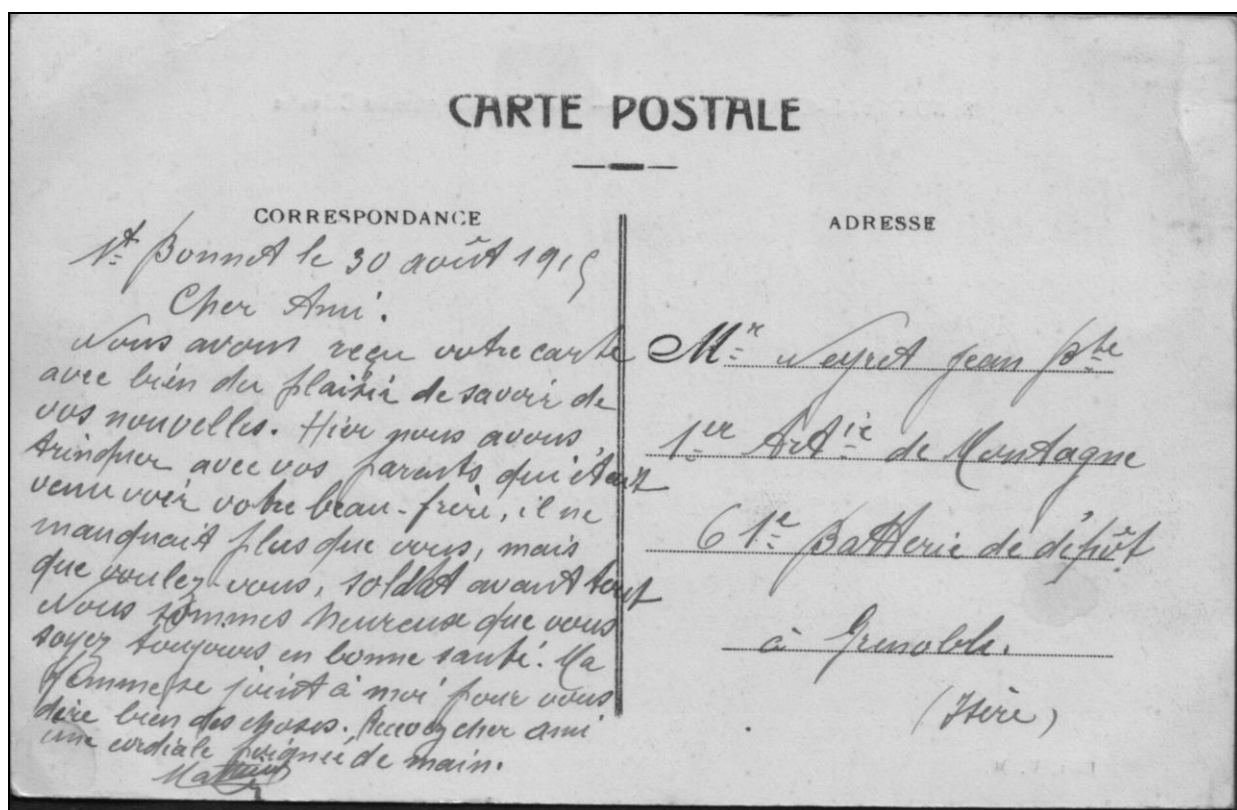 CARTE POSTALE
CORRESPONDANCE
St Bonnet le 30 août 1915
Cher Ami.
Nous avons reçu votre carte
avec bien du plaisir de savoir de
vos nouvelles. Hier nous avons
trinquer avec vos parents qui était
venu voir votre beau-frère, il ne
manquait plus que vous, mais
que voulez-vous, soldat avant tout
Nous sommes heureux que vous
soyez toujours en bonne santé. Ma
femme se joint à moi pour vous
dire bien des choses. Recevez cher ami
une cordiale poignée de main.
ADRESSE
Mr Neyret Jean Bte
1er Artie de Montagne
61e Batterie de dépôt
à Grenoble.
(Isère)